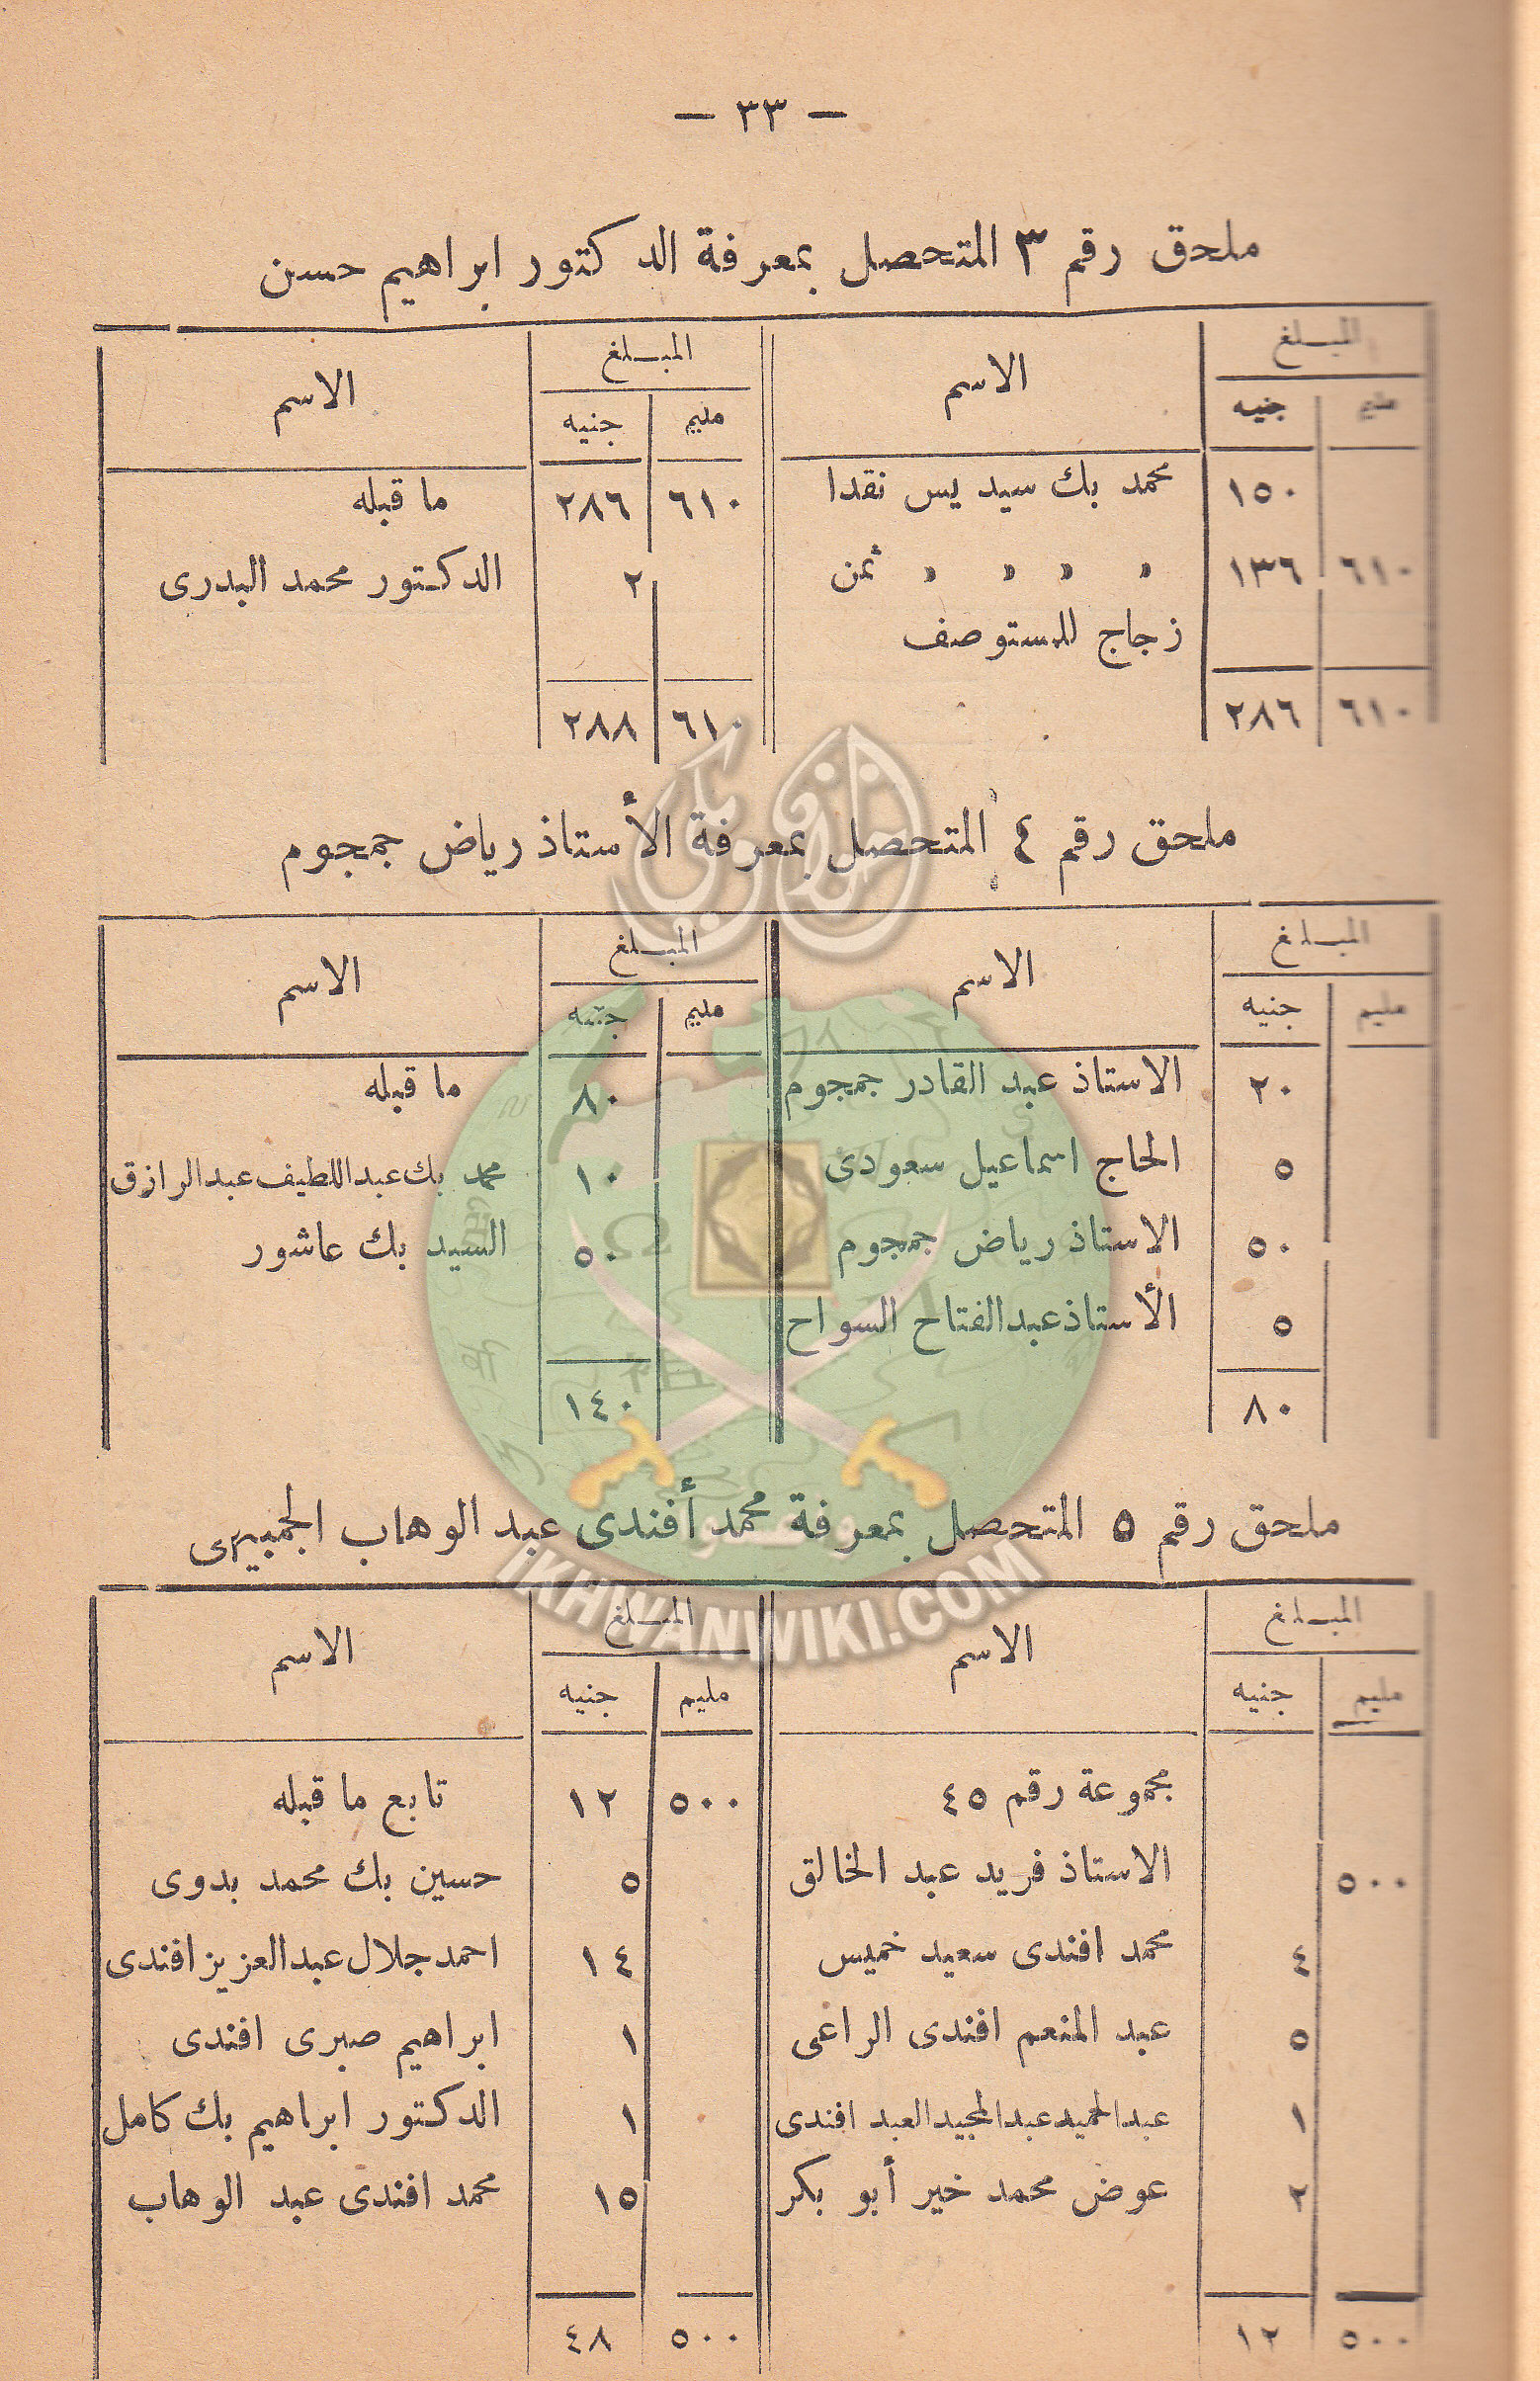 — ٣٣ —
ملحق رقم ٣ المتحصل بمعرفة الدكتور ابراهيم حسن
المبلغ الاسم المبلغ الاسم
مليم جنيه مليم جنيه
١٥٠ محمد بك سيد يس نقدا ٦١٠ ٢٨٦ ما قبله
٦١٠ ١٣٦ » » » » ثمن ٢ الدكتور محمد البدرى
زجاج للمستوصف
٦١٠ ٢٨٦ ٦١٠ ٢٨٨
ملحق رقم ٤ المتحصل بمعرفة الأستاذ رياض جمجوم
المبلغ الاسم المبلغ الاسم
مليم جنيه مليم جنيه
٢٠ الاستاذ عبد القادر جمجوم ٨٠ ما قبله
٥ الحاج اسماعيل سعودى ١٠ محمد بك عبد اللطيف عبد الرازق
٥٠ الاستاذ رياض جمجوم ٥٠ السيد بك عاشور
٥ الأستاذ عبد الفتاح السواح
٨٠ ١٤٠
ملحق رقم ٥ المتحصل بمعرفة محمد أفندى عبد الوهاب الجمبيرى
المبلغ الاسم المبلغ الاسم
مليم جنيه مليم جنيه
مجموعة رقم ٤٥ ٥٠٠ ١٢ تابع ما قبله
٥٠٠ الاستاذ فريد عبد الخالق ٥ حسين بك محمد بدوى
٤ محمد افندى سعيد خميس ١٤ احمد جلال عبد العزيز افندى
٥ عبد المنعم افندى الراعى ١ ابراهيم صبرى افندى
١ عبد الحميد عبد المجيد العبد افندى ١ الدكتور ابراهيم بك كامل
٢ عوض محمد خير أبو بكر ١٥ محمد افندى عبد الوهاب
٥٠٠ ١٢ ٥٠٠ ٤٨
IKHWANWIKI.COM